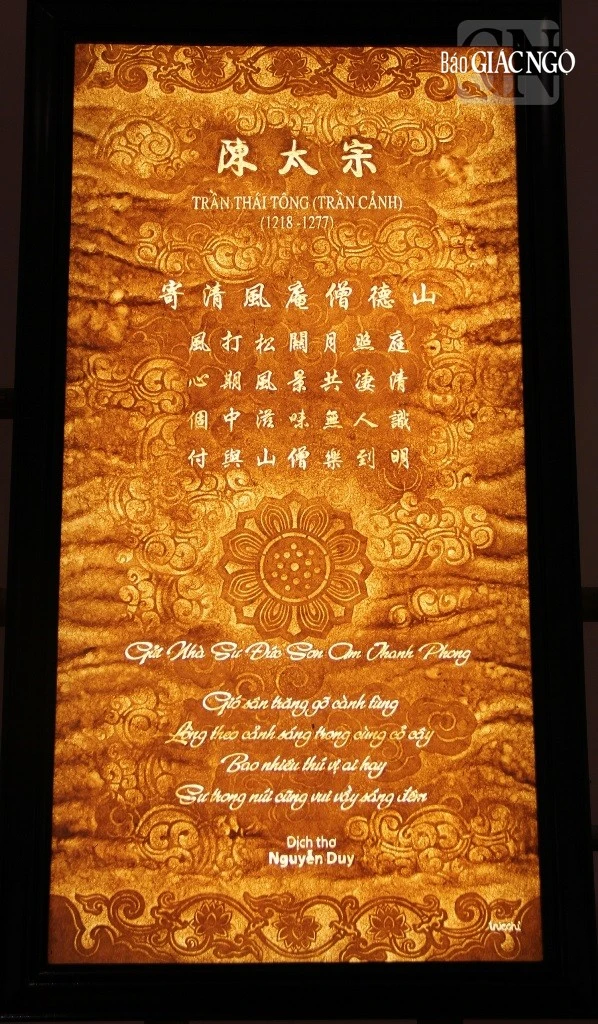 Báo GIÁC NGỘ
陳太宗
TRẦN THÁI TÔNG (TRẦN CẢNH)
(1218 -1277)
寄清風庵僧德山
風打松關月照庭
心期風景共凄清
個中滋味無人識
付與山僧樂到明
Gửi Nhà Sư Đức Sơn Am Thanh Phong
Gió sân trăng gõ cành tùng
Lòng theo cảnh sáng trong cùng cỏ cây
Bao nhiêu thú vị ai hay
Sư trong núi cũng vui vầy sáng đêm
Dịch thơ
Nguyễn Duy